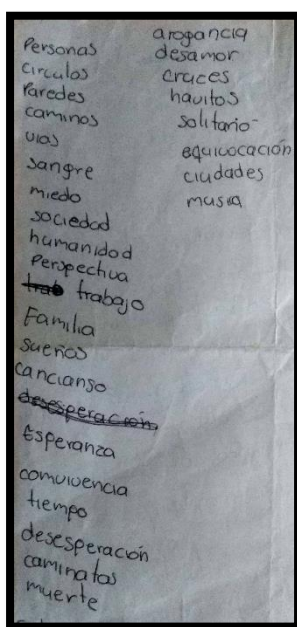 Personas
circulos
Paredes
caminos
vias
sangre
miedo
sociedad
humanidad
Perspectiva
trabajo
Familia
sueños
cancianso
desesperación
Esperanza
comvivencia
tiempo
desesperación
caminatas
muerte
arogancia
desamor
cruces
havitos
solitario
equivocación
ciudades
musica